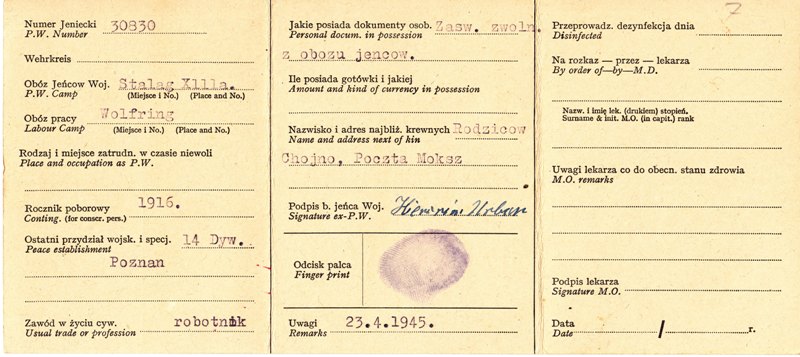 Numer Jeniecki 30830
P.W. Number
Wehrkreis
Obóz Jeńcow Woj. Stalag Xllla.
P.W. Camp (Miejsce i No.) (Place and No.)
Obóz pracy Wolfring
Labour Camp (Miejsce i No.) (Place and No.)
Rodzaj i miejsce zatrudn. w czasie niewoli
Place and occupation as P.W.
Rocznik poborowy 1916.
Conting. (for conscr. pers.)
Ostatni przydział wojsk. i specj. 14 Dyw.
Peace establishment
Poznan
Zawód w życiu cyw. robotnik
Usual trade or profession
Jakie posiada dokumenty osob. Zasw. zwoln.
Personal docum. in possession
z obozu jencow.
Ile posiada gotówki i jakiej
Amount and kind of currency in possession
Nazwisko i adres najbliż. krewnych Rodzicow
Name and address next of kin
Chojno, Poczta Moksz
Podpis b. jeńca Woj. Urban
Signature ex-P.W.
Odcisk palca
Finger print
Uwagi 23.4.1945.
Remarks
7
Przeprowadz. dezynfekcja dnia
Disinfected
Na rozkaz — przez — lekarza
By order of—by—M.D.
Nazw. i imię lek. (drukiem) stopień.
Surname & init. M.O. (in capit.) rank
Uwagi lekarza co do obecn. stanu zdrowia
M.O. remarks
Podpis lekarza
Signature M.O.
Data / r.
Date